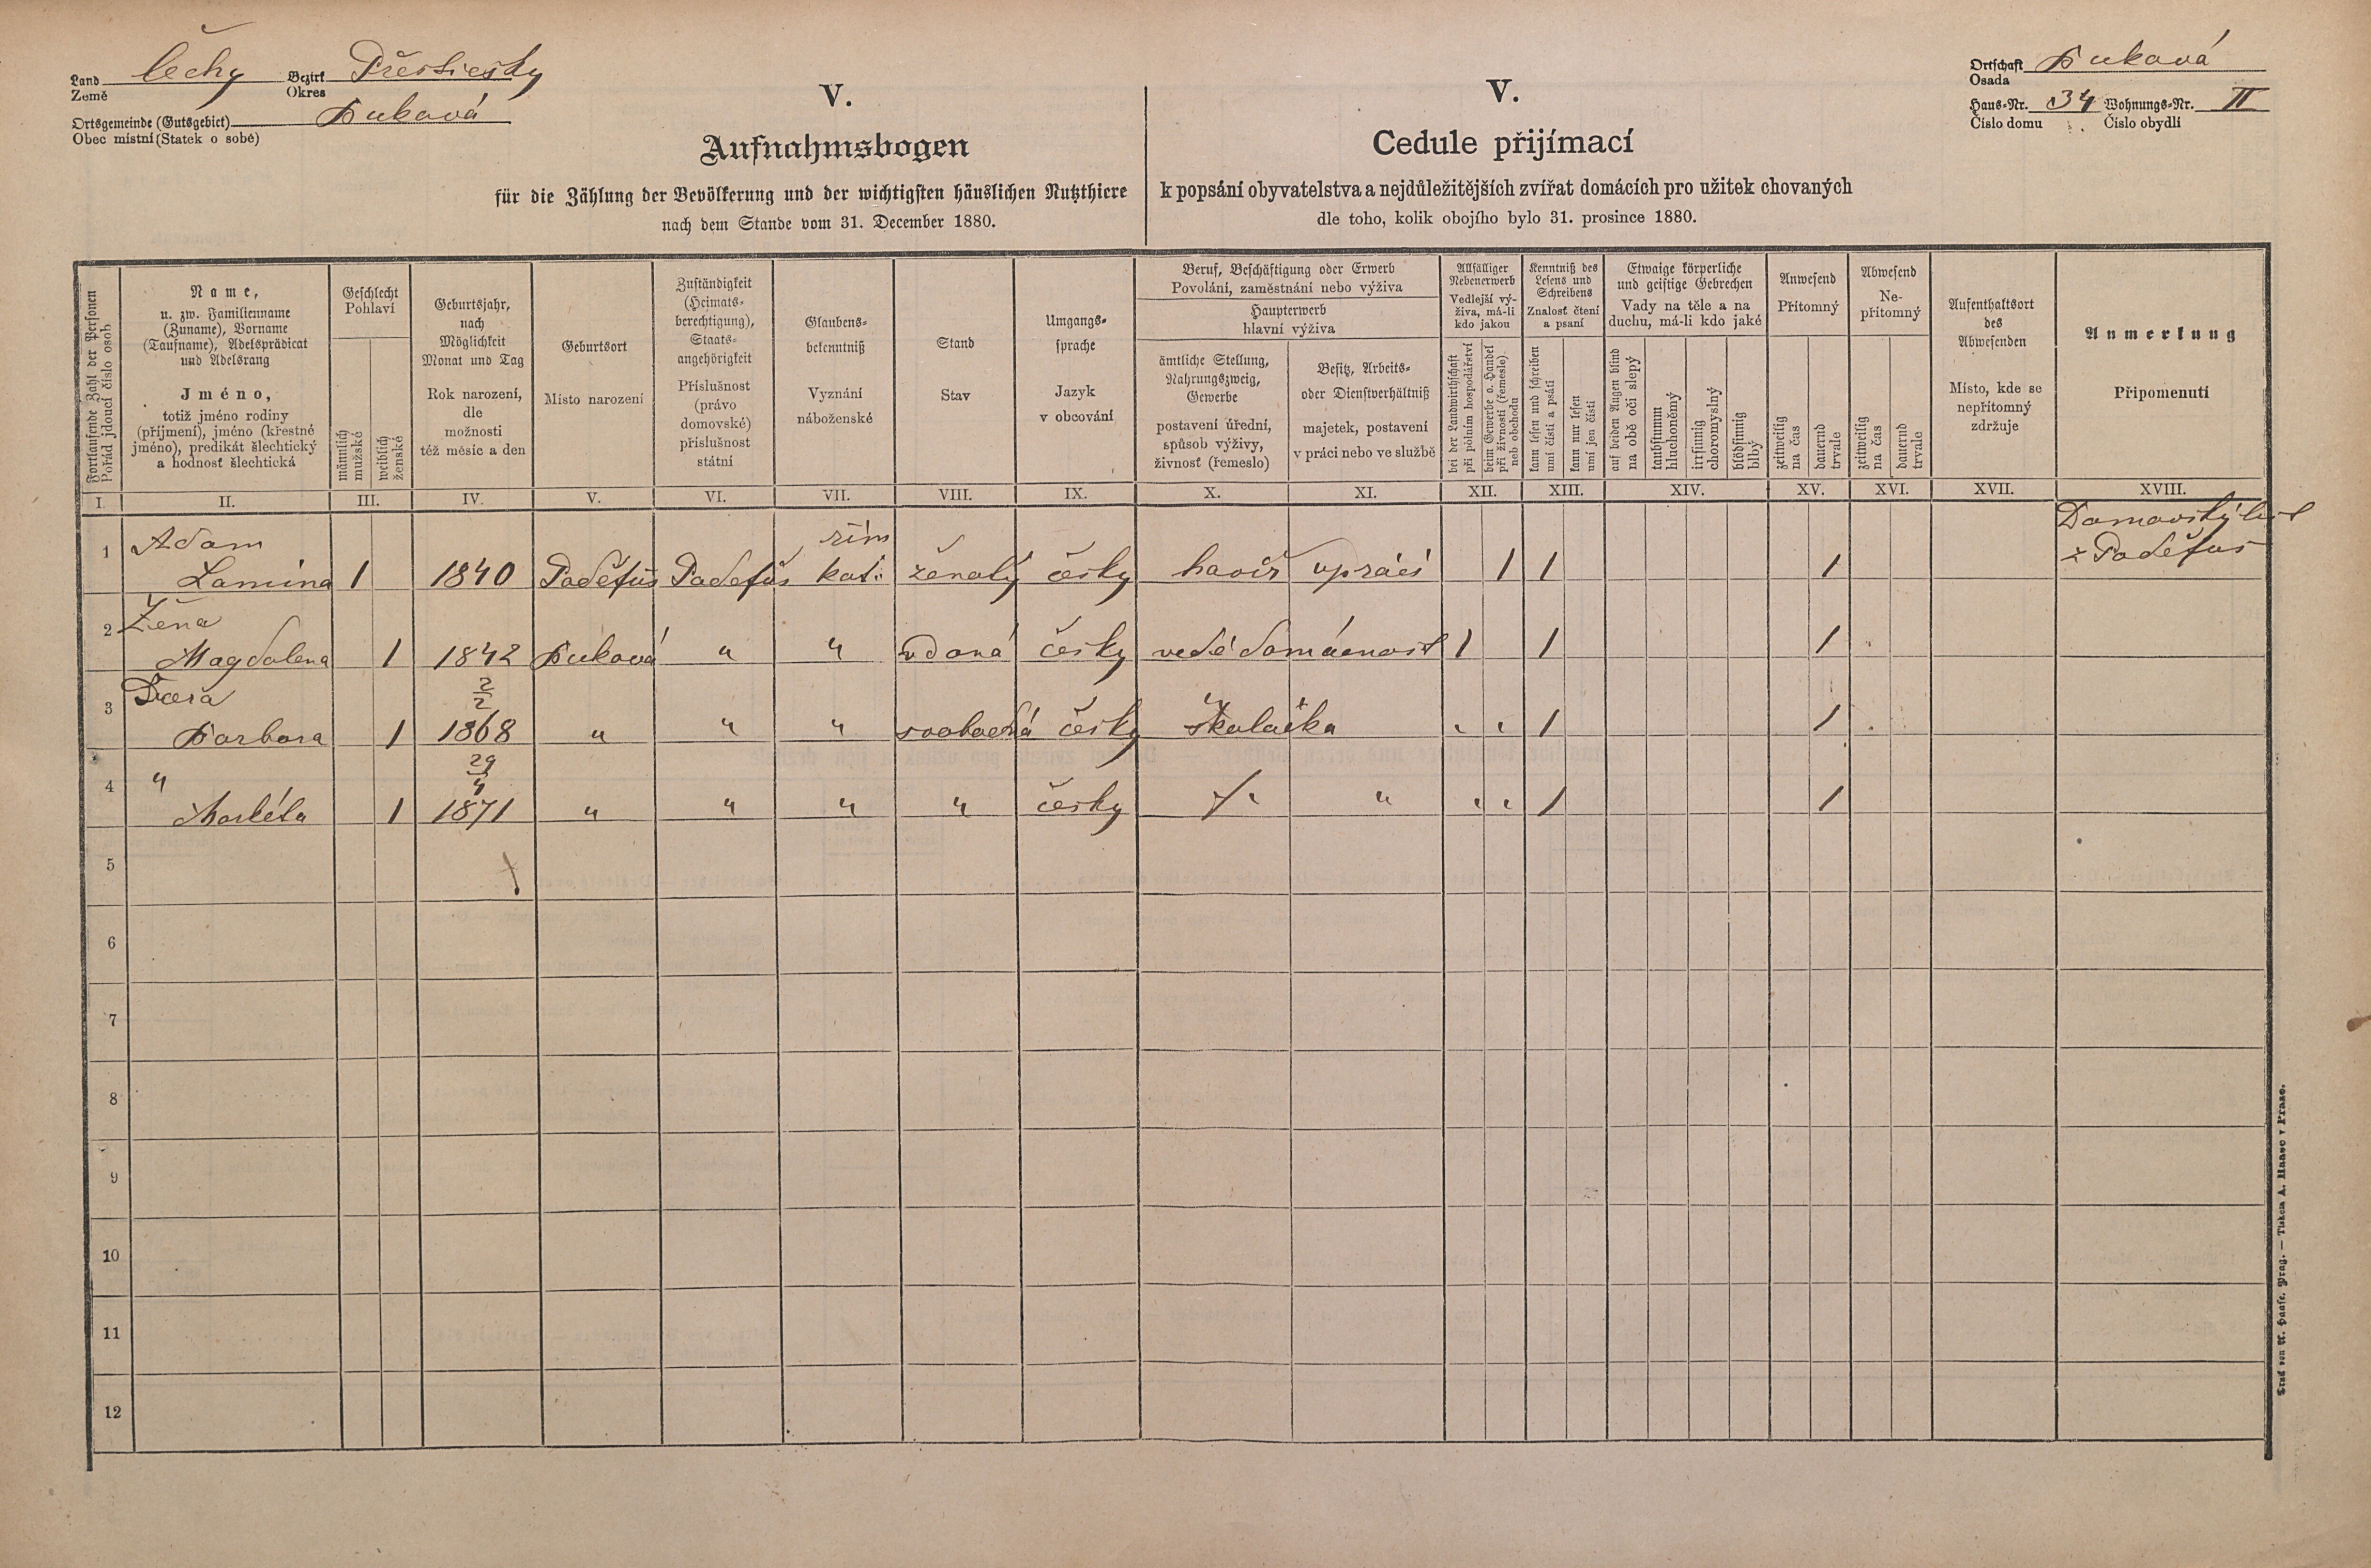 Land Čechy Bezirk Přestický
Země Okres
Ortsgemeinde (Gutsgebiet) Buková
Obec místní (Statek o sobě)
Ortschaft Buková
Osada
Haus-Nr. 34 Wohnungs-Nr. II
Číslo domu Číslo obydlí
V.
Aufnahmsbogen
für die Zählung der Bevölkerung und der wichtigsten häuslichen Nutzthiere
nach dem Stande vom 31. December 1880.
V.
Cedule přijímací
k popsání obyvatelstva a nejdůležitějších zvířat domácích pro užitek chovaných
dle toho, kolik obojího bylo 31. prosince 1880.
Fortlaufende Zahl der Personen
Pořád jdoucí číslo osob
Name,
u. zw. Familienname
(Zuname), Vorname
(Taufname), Adelsprädicat
und Adelsrang
Jméno,
totiž jméno rodiny
(příjmení), jméno (křestné
jméno), predikát šlechtický
a hodnosť šlechtická
Geschlecht
Pohlaví
männlich
mužské
weiblich
ženské
Geburtsjahr,
nach
Möglichkeit
Monat und Tag
Rok narození,
dle
možnosti
též měsíc a den
Geburtsort
Místo narození
Zuständigkeit
(Heimats-
berechtigung),
Staats-
angehörigkeit
Příslušnost
(právo
domovské)
příslušnost
státní
Glaubens-
bekenntniß
Vyznání
náboženské
Stand
Stav
Umgangs-
sprache
Jazyk
v obcování
Beruf, Beschäftigung oder Erwerb
Povolání, zaměstnání nebo výživa
Haupterwerb
hlavní výživa
ämtliche Stellung,
Nahrungszweig,
Gewerbe
postavení úřední,
spůsob výživy,
živnosť (řemeslo)
Besitz, Arbeits-
oder Dienstverhältniß
majetek, postavení
v práci nebo ve službě
Allfälliger
Nebenerwerb
Vedlejší vý-
živa, má-li
kdo jakou
bei der Landwirthschaft
při polním hospodářství
beim Gewerbe o. Handel
při živnosti (řemesle)
neb obchodu
Kenntniß des
Lesens und
Schreibens
Znalosť čtení
a psaní
kann lesen und schreiben
umí čísti a psáti
kann nur lesen
umí jen čísti
Etwaige körperliche
und geistige Gebrechen
Vady na těle a na
duchu, má-li kdo jaké
auf beiden Augen blind
na obě oči slepý
taubstumm
hluchoněmý
irrsinnig
choromyslný
blödsinnig
blbý
Anwesend
Přítomný
zeitweilig
na čas
dauernd
trvale
Abwesend
Ne-
přítomný
zeitweilig
na čas
dauernd
trvale
Aufenthaltsort
des
Abwesenden
Místo, kde se
nepřítomný
zdržuje
Anmerkung
Připomenutí
I. II. III. IV. V. VI. VII. VIII. IX. X. XI. XII. XIII. XIV. XV. XVI. XVII. XVIII.
1 Adam řím Domovský list
Lamina 1 1840 Paděfus Padefus kat. ženatý česky havíř v práci 1 1 1 z Paděfus
2 Žena
Magdalena 1 1842 Buková " " vdaná česky vede domácnost 1 1 1
3 Dcera 2/2
Barbora 1 1868 " " " svobodná česky školačka " " 1 1
4 " 29/4
Markéta 1 1871 " " " " česky " " " " 1 1
5
6
7
8
9
10
11
12
Druck von A. Haase, Prag. — Tiskem A. Haase v Praze.